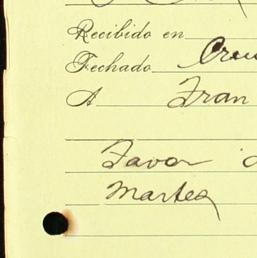 Recibido en
Fechado
A Fran
Favor
Martes